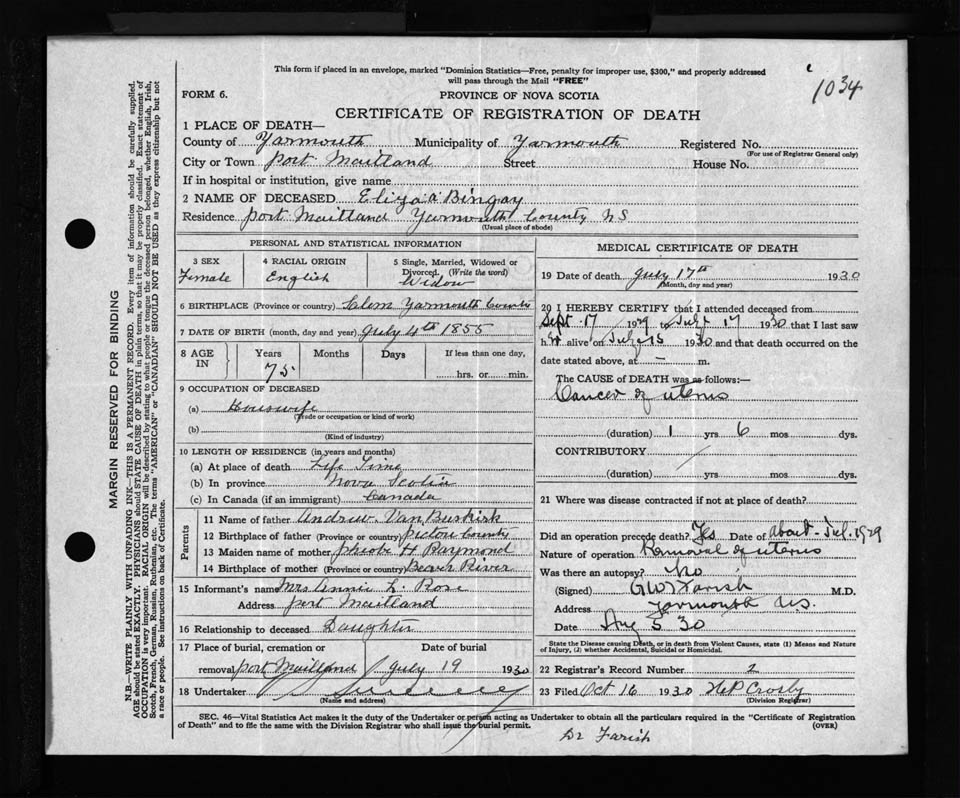 This form if placed in an envelope, marked "Dominion Statistics—Free, penalty for improper use, $300," and properly addressed
will pass through the Mail "FREE"
1034
FORM 6.
PROVINCE OF NOVA SCOTIA
CERTIFICATE OF REGISTRATION OF DEATH
1 PLACE OF DEATH—
County of Yarmouth Municipality of Yarmouth Registered No.
(For use of Registrar General only)
City or Town Port Maitland Street House No.
If in hospital or institution, give name
2 NAME OF DECEASED Eliza A Bingay
Residence Port Maitland Yarmouth County NS
(Usual place of abode)
PERSONAL AND STATISTICAL INFORMATION
3 SEX 4 RACIAL ORIGIN 5 Single, Married, Widowed or
Divorced. (Write the word)
Female English Widow
6 BIRTHPLACE (Province or country) Yarmouth County
7 DATE OF BIRTH (month, day and year) July 4th 1855
8 AGE IN Years Months Days If less than one day,
75 hrs. or min.
9 OCCUPATION OF DECEASED
(a) Housewife
(Trade or occupation or kind of work)
(b)
(Kind of industry)
10 LENGTH OF RESIDENCE (in years and months)
(a) At place of death Life Time
(b) In province Nova Scotia
(c) In Canada (if an immigrant) Canada
Parents
11 Name of father Andrew Van Buskirk
12 Birthplace of father (Province or country) Pictou County
13 Maiden name of mother Pheobe H Raymond
14 Birthplace of mother (Province or country) Beaver River
15 Informant's name Mrs Annie L. Rose
Address Port Maitland
16 Relationship to deceased Daughter
17 Place of burial, cremation or Date of burial
removal Port Maitland July 19 1930
18 Undertaker
(Name and address)
MEDICAL CERTIFICATE OF DEATH
19 Date of death July 17th 1930
(Month, day and year)
20 I HEREBY CERTIFY that I attended deceased from
Sept 17 1929 to July 17 1930 that I last saw
her alive on July 15 1930 and that death occurred on the
date stated above, at — m.
The CAUSE OF DEATH was as follows:—
Cancer of uterus
(duration) 1 yrs 6 mos dys.
CONTRIBUTORY
(duration) yrs. mos. dys.
21 Where was disease contracted if not at place of death?
Did an operation precede death? Yes Date of about 1929
Nature of operation Removal of uterus
Was there an autopsy? No
(Signed) GWT Farish M.D.
Address Yarmouth N.S.
Date Aug 5 30
State the Disease causing Death, or in death from Violent Causes, state (1) Means and Nature
of Injury, (2) whether Accidental, Suicidal or Homicidal.
22 Registrar's Record Number 2
23 Filed Oct 16 1930 H P Crosby
(Division Registrar)
SEC. 46—Vital Statistics Act makes it the duty of the Undertaker or person acting as Undertaker to obtain all the particulars required in the "Certificate of Registration
of Death" and to file the same with the Division Registrar who shall issue the burial permit. (OVER)
Dr Farish
MARGIN RESERVED FOR BINDING
N.B.—WRITE PLAINLY WITH UNFADING INK—THIS IS A PERMANENT RECORD. Every item of information should be carefully supplied.
AGE should be stated EXACTLY. PHYSICIANS should STATE CAUSE OF DEATH in plain terms, so that it may be properly classified. Exact statement of
OCCUPATION is very important. RACIAL ORIGIN will be described by stating to what people or tongue the deceased person belonged, whether English, Irish,
Scotch, French, German, Russian, Ruthenian, etc. The terms "AMERICAN" or "CANADIAN" SHOULD NOT BE USED as they express citizenship but not
a race or people. See instructions on back of Certificate.